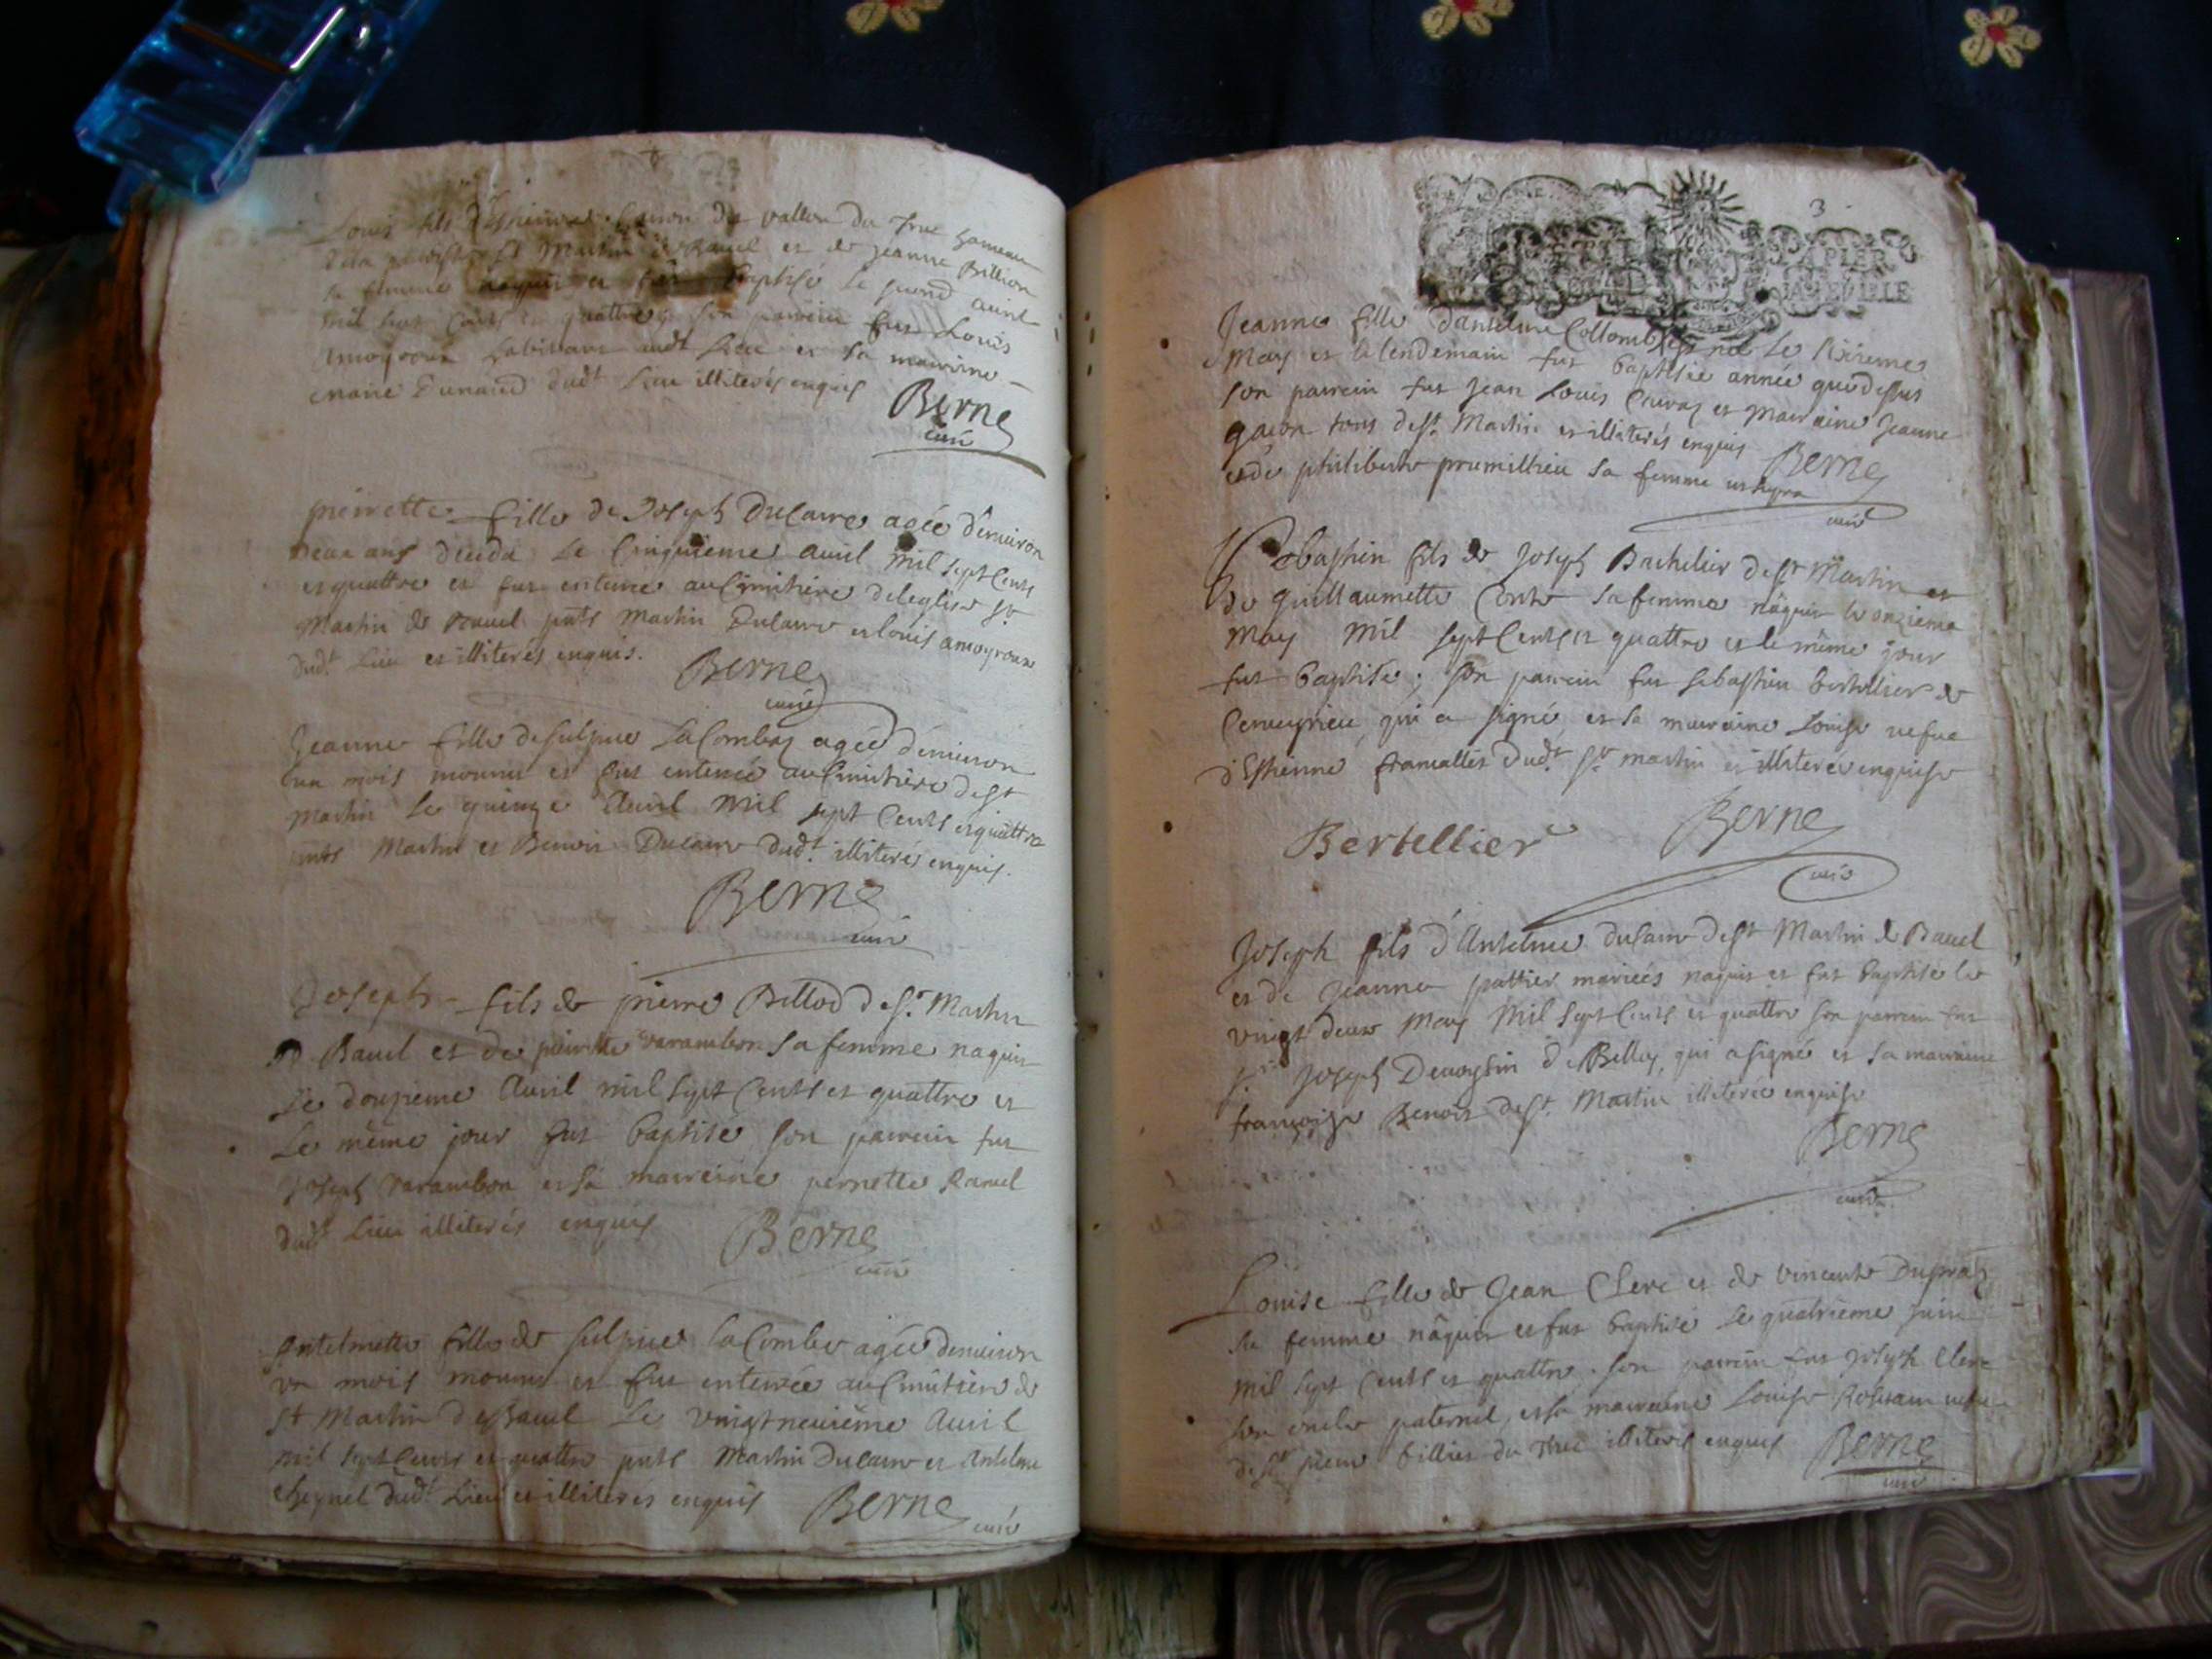 Louis fils d'Estienne du vallon du Truc hameau
de la St Martin de Bavel et de jeanne Billion
sa femme naquit et fut baptisé le second avril
mil sept cents et quattre son parrein fut Louis
amoyroux habitant audt Lieu et sa marreine
marie Dunand dudt Lieu illiterés enquis
Berne
curé
pierrette fille de Joseph Dulaure agée d'environ
deux ans deceda Le Cinquieme avril mil sept Cents
et quattre et fut enterrée au Cimitiere de leglise St
Martin de Bavel pnts Martin Dulaure et louis amoyroux
dudt Lieu et illiterés enquis.
Berne
curé
Jeanne fille de sulpice LaCombe agée d'environ
un mois mourut et fut enterrée au Cimitiere de St
Martin Le quinze Avril mil sept Cents et quattre
pnts Martin et Benoit Dulaure dudt illiterés enquis.
Berne
curé
Joseph fils de pierre Billod de St Martin
de Bavel et de pierrette varambon sa femme naquit
Le douzieme Avril mil sept Cents et quattre et
Le même jour fut baptisé son parrein fut
Joseph varambon et sa marreine pernette Ravel
dudt Lieu illiterés enquis
Berne
curé
Antelmette fille de sulpice laCombe agée denviron
un mois mourut et fut enterrée au Cimitiere de
St Martin de Bavel Le vingt neuvieme Avril
mil sept Cents et quattre pnts Martin Dulaure et Antelme
cheynel dudt Lieu et illiteres enquis
Berne
curé
3
PAPIER
Jeanne fille d'antelme Collomb est née Le sixieme
May et le lendemain fut baptisée année que dessus
son parrein fut Jean Louis et marraine Jeanne
gacon tous de St Martin et illiterés enquis
et de philiberte prumillieu sa femme
Berne
curé
Sebastien fils de Joseph Bachelier de St Martin et
de guillaumette Conte sa femme nâquit le onzieme
May mil sept Cents et quattre et le même jour
fut baptisé; son parrein fut sebastien bertellier de
Ceuveyrieu, qui a signé et sa marraine Louise vefue
d'Estienne dudt St martin et illiterée enquise
Bertellier
Berne
curé
Joseph fils d'Antelme dulaure de St Martin de Bavel
et de Jeanne pottier mariés naquit et fut baptisé le
vingt deux May mil sept Cents et quattre son parrein fut
Joseph Devoysin de Belley, qui a signé et sa marraine
françoise Benoit de St Martin illiterée enquise
Berne
curé
Louise fille de Jean Clerc et de vincente Dupraz
sa femme nâquit et fut baptisée Le quatrieme juin
mil sept Cents et quattre. son parrein fut joseph Clerc
son oncle paternel, et sa marraine Louise vefue
de pierre billiet du Truc illiterés enquis
Berne
curé